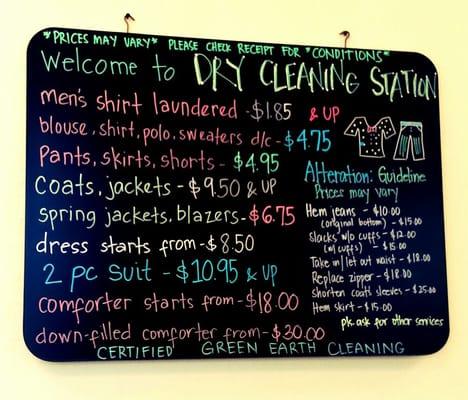 *PRICES MAY VARY* PLEASE CHECK RECEIPT FOR *CONDITIONS*
Welcome to DRY CLEANING STATION
men's shirt laundered - $1.85 & UP
blouse, shirt, polo, sweaters d/c - $4.75
Pants, skirts, shorts - $4.95
Coats, jackets - $9.50 & UP
spring jackets, blazers - $6.75
dress starts from - $8.50
2 pc suit - $10.95 & UP
comforter starts from - $18.00
down-filled comforter from - $30.00
Alteration: Guideline
Prices may vary
Hem jeans - $10.00
(original bottom) - $15.00
Slacks w/o cuffs - $12.00
(w/ cuffs) - $15.00
Take in/let out waist - $18.00
Replace zipper - $18.00
shorten coats sleeves - $25.00
Hem skirt - $15.00
plz ask for other services
CERTIFIED GREEN EARTH CLEANING